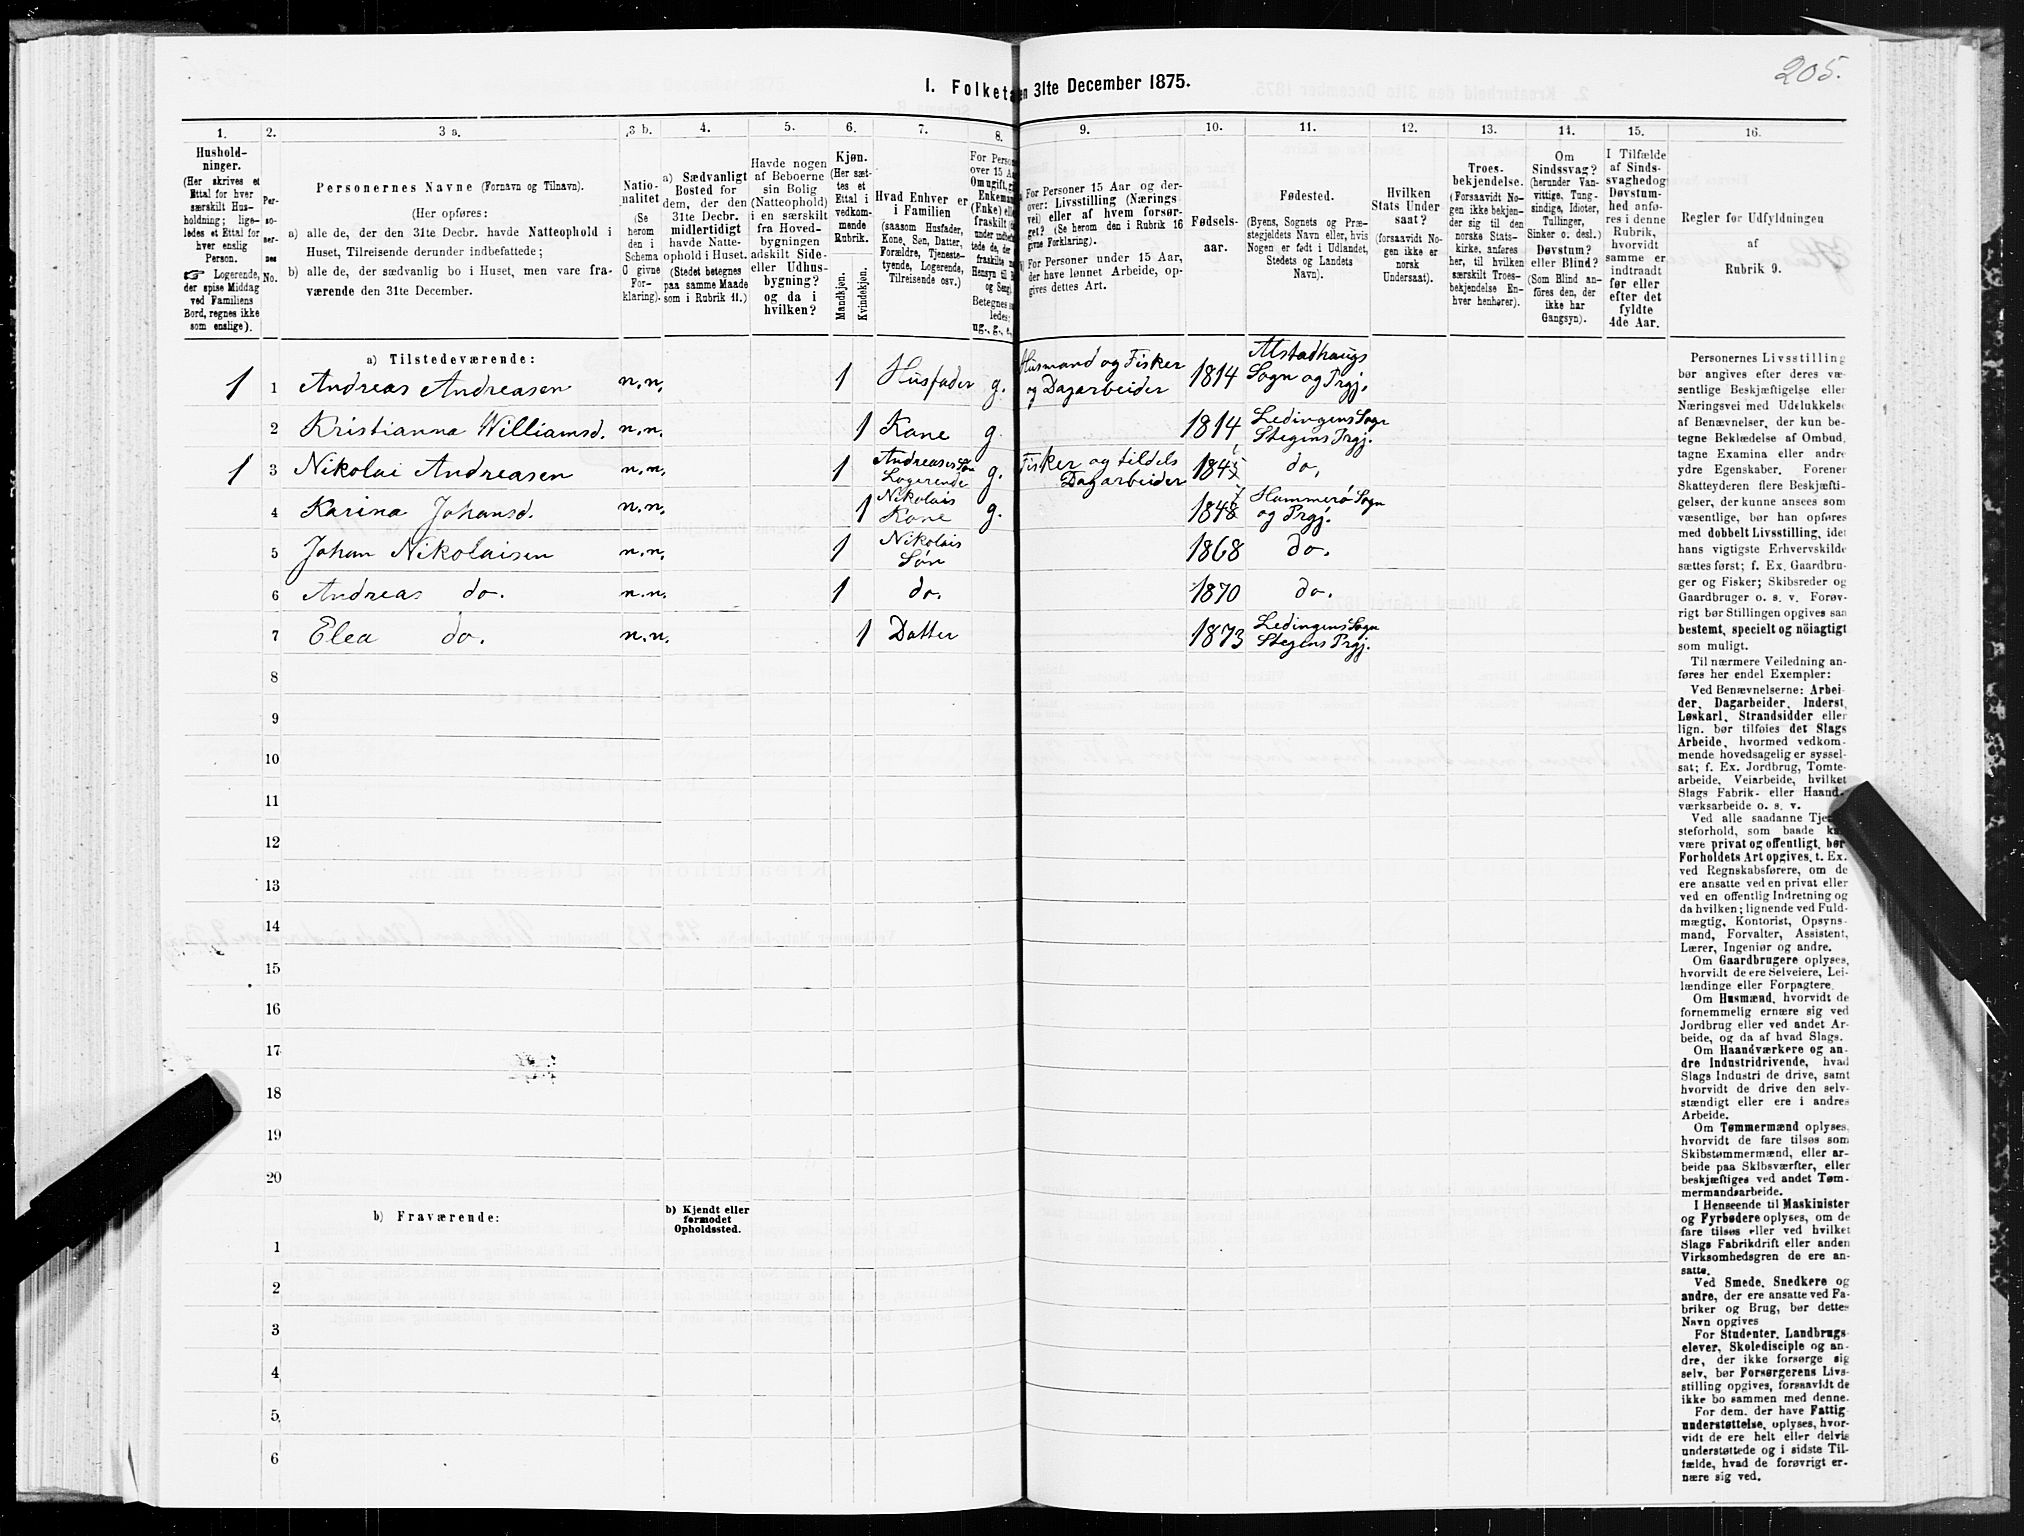 205.
I. Folketa en 31te December 1875.
1. 2. 3 a. 3 b. 4. 5. 6. 7. 8. 9. 10. 11. 12. 13. 14. 15. 16.
Hushold-
ninger.
(Her skrives et
Ettal for hver
særskilt Hus-
holdning; lige-
ledes et Ettal for
hver enslig
Person.
☞ Logerende,
der spise Middag
ved Familiens
Bord, regnes ikke
som enslige).
Per-
so-
ner-
nes
No.
Personernes Navne (Fornavn og Tilnavn).
(Her opføres:
a) alle de, der den 31te Decbr. havde Natteophold i
Huset, Tilreisende derunder indbefattede;
b) alle de, der sædvanlig bo i Huset, men vare fra-
værende den 31te December.
Natio-
nalitet
(Se
herom
den i
Schema
C givne
For-
klaring).
a) Sædvanligt
Bosted for
dem, der den
31te Decbr.
midlertidigt
havde Natte-
ophold i Huset.
(Stedet betegnes
paa samme Maade
som i Rubrik 11.)
Havde nogen
af Beboerne
sin Bolig
(Natteophold)
i en særskilt
fra Hoved-
bygningen
adskilt Side-
eller Udhus-
bygning?
og da i
hvilken?
Kjøn.
(Her sæt-
tes et
Ettal i
vedkom-
mende
Rubrik.
Mandkjøn.
Kvindekjøn.
Hvad Enhver er
i Familien
(saasom Husfader,
Kone, Søn, Datter,
Forældre, Tjeneste-
tyende, Logerende,
Tilreisende osv.)
For Person
over 15 Aar
Om ugift, g
Enkeman
(Enke) elle
fraskilt
under indbef
tede de, der
fraskilte
Hensyn til
og Seng.
Betegnes s
ledes:
ug., g., e.,
For Personer 15 Aar og der-
over: Livsstilling (Nærings
vei) eller af hvem forsør-
get? (Se herom den i Rubrik 16
givne Forklaring).
For Personer under 15 Aar,
der have lønnet Arbeide, op-
gives dettes Art.
Fødsels-
aar.
Fødested.
(Byens, Sognets og Præ-
stegjeldets Navn eller, hvis
Nogen er født i Udlandet,
Stedets og Landets
Navn).
Hvilken
Stats Under
saat?
(forsaavidt No-
gen ikke er
norsk
Undersaat).
Troes-
bekjendelse.
(Forsaavidt Nogen
ikke bekjen-
der sig til den
norske Stats-
kirke, anføres
her, til hvilken
særskilt Troes-
bekjendelse En-
hver henhører).
Om
Sindssvag?
(herunder Van-
vittige, Tung-
sindige, Idioter,
Tullinger,
Sinker o. desl.)
Døvstum?
eller Blind?
(Som Blind an-
føres den, der
ikke har
Gangsyn).
I Tilfælde
af Sinds-
svaghedog
Døvstum-
hed anfø-
res i denne
Rubrik,
hvorvidt
samme er
indtraadt
før eller
efter det
fyldte
4de Aar.
Regler for Udfyldningen
af
Rubrik 9.
a) Tilstedeværende:
1 1 Andreas Andreasen n.n. 1 Husfader g. Husmand og Fisker og Dagarbeider 1814 Alstadhaugs Sogn og Prgj.
2 Kristianna Williamsd. n.n. 1 Kone g. 1814 Ledingens Sogn Stegens Prgj.
1 3 Nikolai Andreasen n.n. 1 Andreases Søn Logerende g. Fisker og tildels Dagarbeider 184 do.
4 Karina Johansd. n.n. 1 Nikolais Kone g. 1848 Hammerø Sogn og Prgj.
5 Johan Nikolaisen n.n. 1 Nikolais Søn 1868 do.
6 Andreas do. n.n. 1 do. 1870 do.
7 Elea do. n.n. 1 Datter 1873 Ledingens Sogn Stegens Prgj.
8
9
10
11
12
13
14
15
16
17
18
19
20
b) Fraværende:
b) Kjendt eller
formodet
Opholdssted.
1
2
3
4
5
6
Personernes Livsstilling
bør angives efter deres væ-
sentlige Beskjæftigelse eller
Næringsvei med Udelukkelse
af Benævnelser, der kun be-
tegne Beklædelse af Ombud,
tagne Examina eller andre
ydre Egenskaber. Forener
Skatteyderen flere Beskjæfti-
gelser, der kunne ansees som
væsentlige, bør han opføres
med dobbelt Livsstilling, idet
hans vigtigste Erhvervskilde
sættes først; f. Ex. Gaardbru-
ger og Fisker; Skibsreder og
Gaardbruger o. s. v. Forøv-
rigt bør Stillingen opgives saa
bestemt, specielt og nöiagtigt
som muligt.
Til nærmere Veiledning an-
føres her endel Exempler:
Ved Benævnelserne: Arbei-
der, Dagarbeider, Inderst,
Løskarl, Strandsidder eller
lign. bør tilføies det Slags
Arbeide, hvormed vedkom-
mende hovedsagelig er syssel-
sat; f. Ex. Jordbrug, Tomte-
arbeide, Veiarbeide, hvilket
Slags Fabrik- eller Haand-
værksarbeide o. s. v.
Ved alle saadanne Tje
steforhold, som baade k
være privat og offentligt, bør
Forholdets Art opgives, t. Ex.
ved Regnskabsførere, om de
ere ansatte ved en privat eller
ved en offentlig Indretning og
da hvilken; lignende ved Fuld-
mægtig, Kontorist, Opsyns-
mand, Forvalter, Assistent,
Lærer, Ingeniør og andre.
Om Gaardbrugere oplyses,
hvorvidt de ere Selveiere, Lei-
lændinge eller Forpagtere.
Om Husmænd, hvorvidt de
fornemmelig ernære sig ved
Jordbrug eller ved andet Ar-
beide, og da af hvad Slags.
Om Haandværkere og an-
dre Industridrivende, hvad
Slags Industri de drive, samt
hvorvidt de drive den selv-
stændigt eller ere i andres
Arbeide.
Om Tømmermænd oplyses,
hvorvidt de fare tilsøs som
Skibstømmermænd, eller ar-
beide paa Skibsværfter, eller
beskjæftiges ved andet Tøm-
mermandsarbeide.
I Henseende til Maskinister
og Fyrbødere oplyses, om de
fare tilsøs eller ved hvilket
Slags Fabrikdrift eller anden
Virksomhedsgren de ere an-
satte.
Ved Smede, Snedkere og
andre, der ere ansatte ved Fa-
briker og Brug, bør dettes
Navn opgives
For Studenter, Landbrugs
elever, Skoledisciple og an-
dre, der ikke forsørge sig
selv, bør Forsørgerens Livs-
stilling opgives, forsaavidt de
ikke bo sammen med denne.
For dem, der have Fattig
understøttelse, oplyses, hvor-
vidt de ere helt eller delvis
understøttede og i sidste Til-
fælde, hvad de forøvrigt er-
nære sig ved.